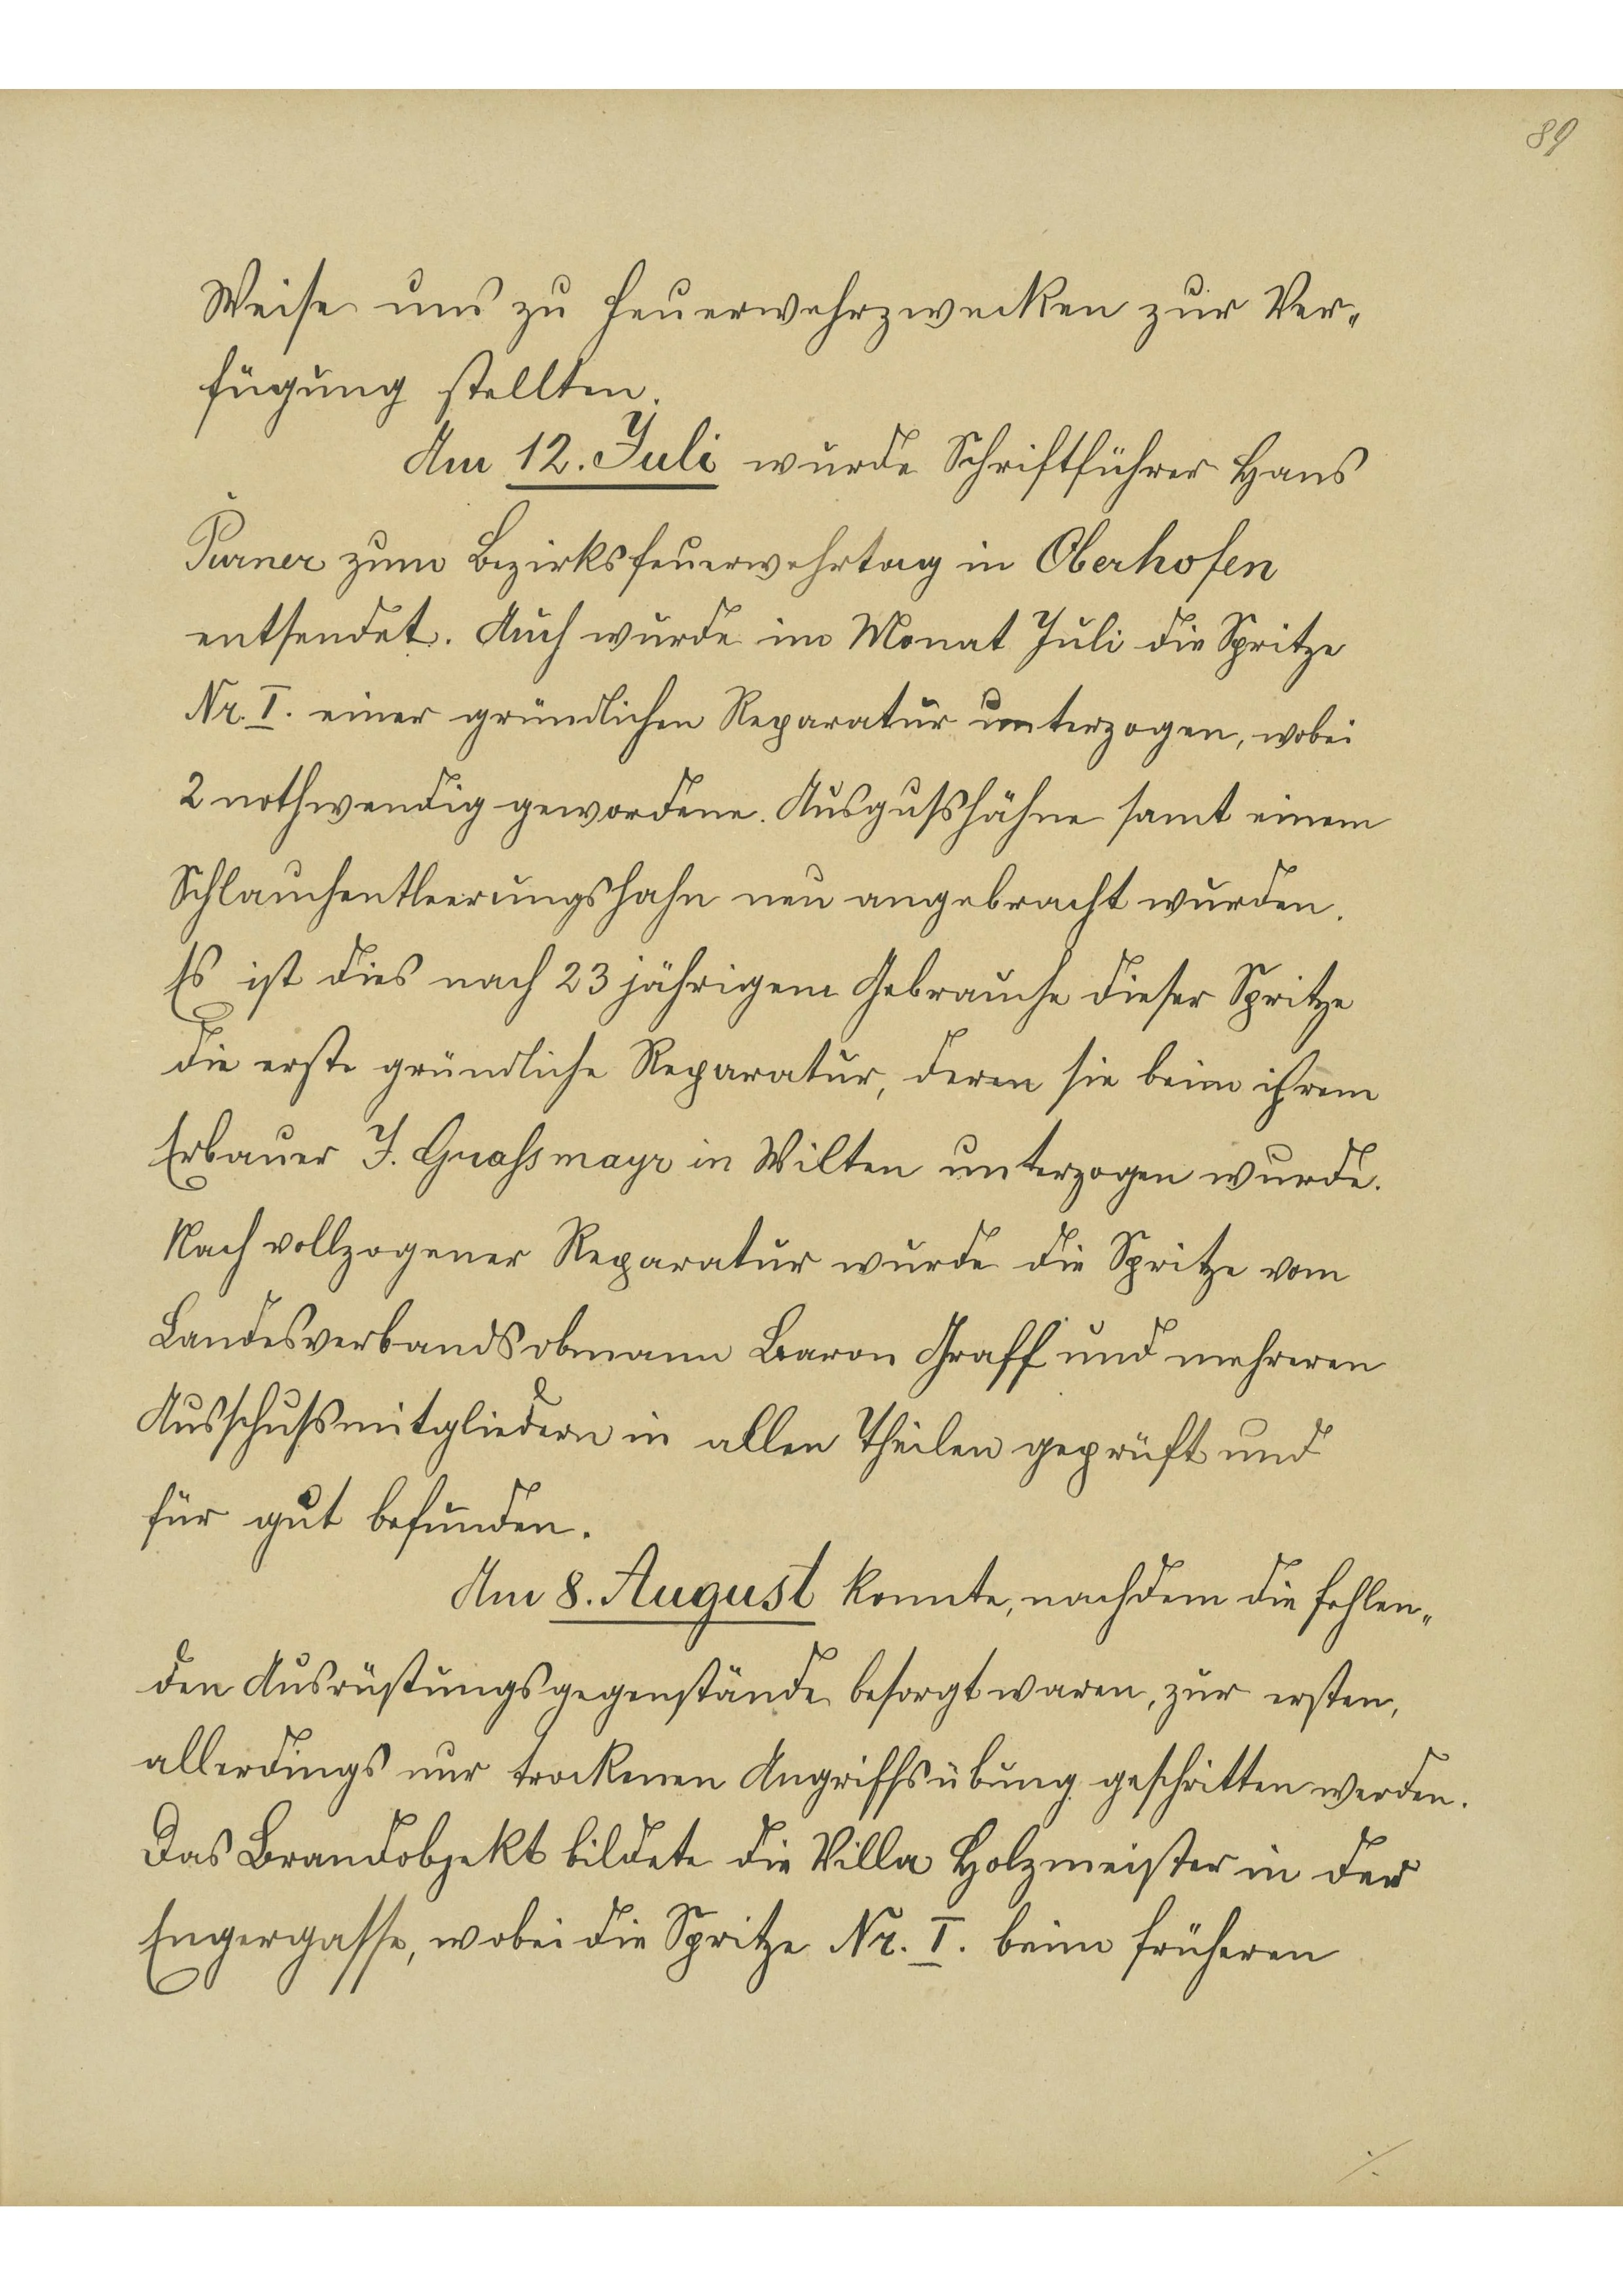 89
Weise uns zu Feuerwehrzwecken zur Ver-
fügung stellten.
Am 12. Juli wurde Schriftführer Hans
Purner zum Bezirksfeuerwehrtag in Oberhofen
entsendet. Auch wurde im Monat Juli die Spritze
Nr. I. einer gründlichen Reparatur unterzogen, wobei
2 nothwendig gewordene Ausgußhähne samt einem
Schlauchentleerungshahn neu angebracht wurden.
Es ist dies nach 23 jährigem Gebrauche dieser Spritze
die erste gründliche Reparatur, deren sie beim ihrem
Erbauer J. Graßmayr in Wilten unterzogen wurde.
Nach vollzogener Reparatur wurde die Spritze vom
Landesverbandsobmann Baron Graff und mehreren
Ausschußmitgliedern in allen Theilen geprüft und
für gut befunden.
Am 8. August konnte, nachdem die fehlen-
den Ausrüstungsgegenstände besorgt waren, zur ersten,
allerdings nur trockenen Angriffsübung geschritten werden.
Das Brandobjekt bildete die Villa Holzmeister in der
Engergasse, wobei die Spritze Nr. I. beim früheren
./.